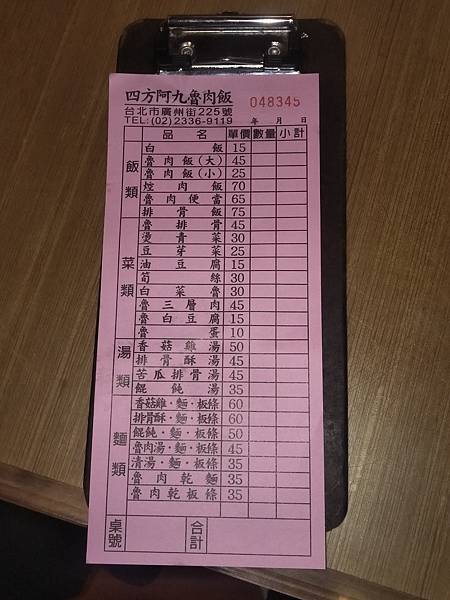 四方阿九魯肉飯
048345
台北市廣州街225號
TEL:(02)2336-9119 年 月 日
品名 單價 數量 小計
飯類
白飯 15
魯肉飯(大) 45
魯肉飯(小) 25
焢肉飯 70
魯肉便當 65
排骨飯 75
菜類
魯排骨 45
燙青菜 30
豆芽菜 25
油豆腐 15
筍絲 30
白菜魯 30
魯三層肉 45
魯白豆腐 15
魯蛋 10
湯類
香菇雞湯 50
排骨酥湯 45
苦瓜排骨湯 45
餛飩湯 35
麵類
香菇雞·麵·板條 60
排骨酥·麵·板條 60
餛飩·麵·板條 50
魯肉湯·麵·板條 45
清湯·麵·板條 35
魯肉乾麵 35
魯肉乾板條 35
桌號 合計